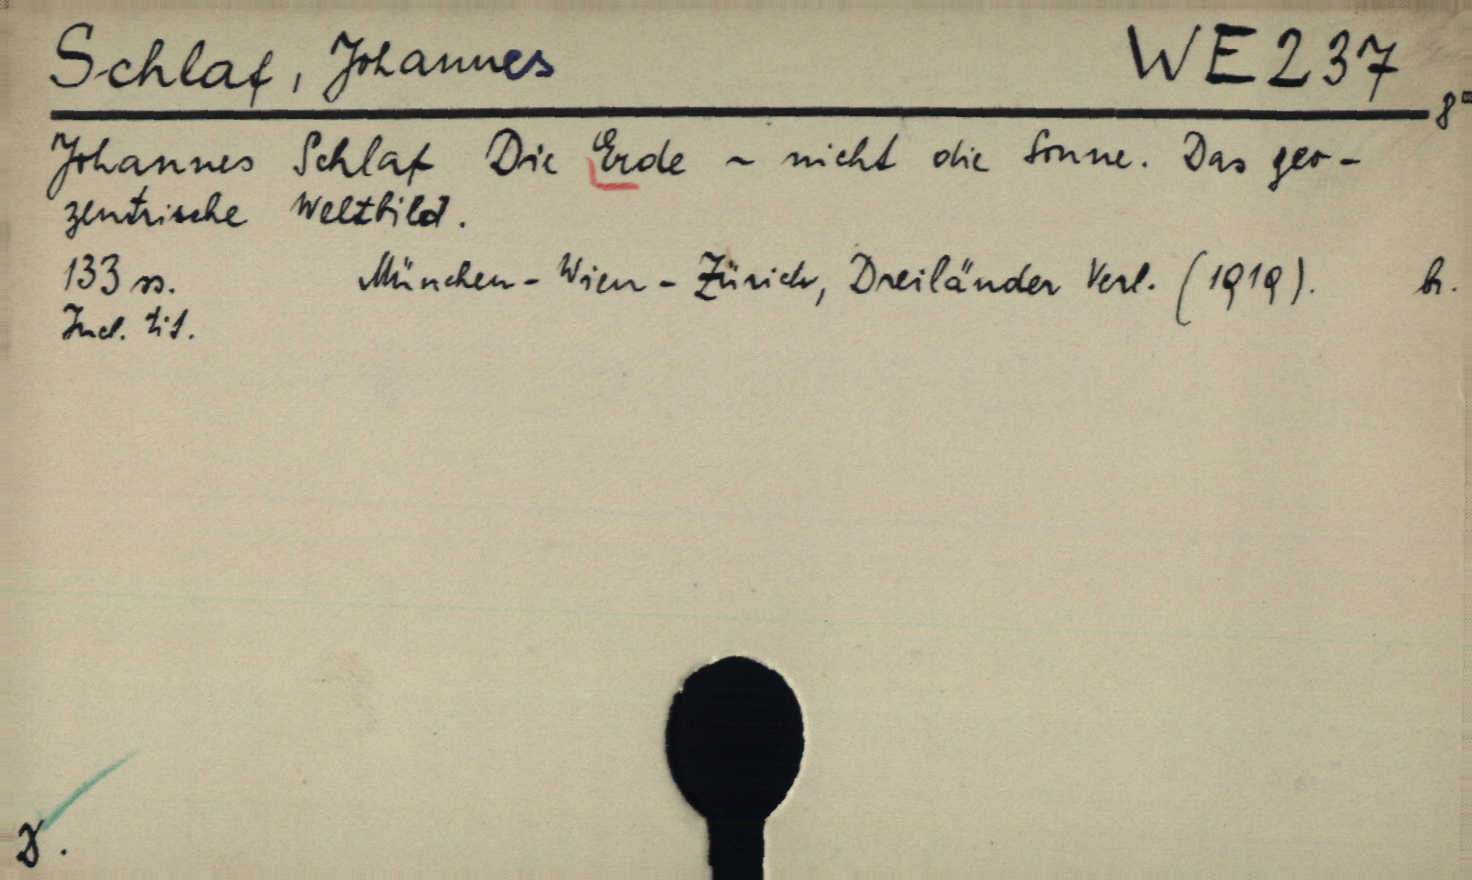 Schlaf, Johannes WE 237
8°
Johannes Schlaf Die Erde - nicht die Sonne. Das geo-
zentrische Weltbild.
133 ss. München - Wien - Zürich, Dreiländer Verl. (1919). br.
Incl. tit.